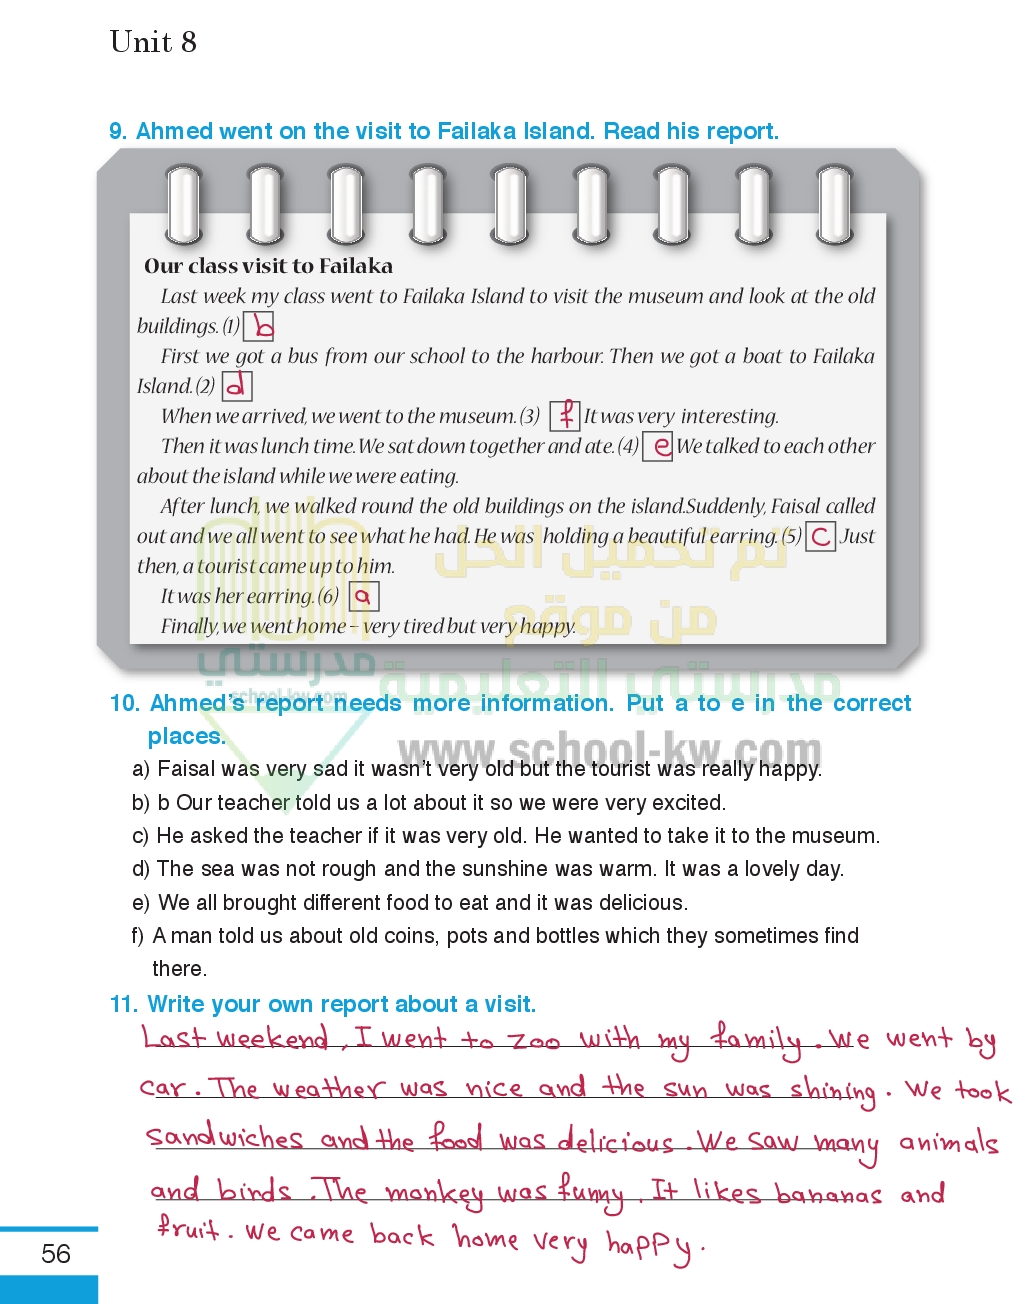 Unit 8
9. Ahmed went on the visit to Failaka Island. Read his report.
Our class visit to Failaka
Last week my class went to Failaka Island to visit the museum and look at the old
buildings. (1) b
First we got a bus from our school to the harbour. Then we got a boat to Failaka
Island. (2) d
When we arrived, we went to the museum. (3) f It was very interesting.
Then it was lunch time. We sat down together and ate. (4) e We talked to each other
about the island while we were eating.
After lunch, we walked round the old buildings on the island.Suddenly, Faisal called
out and we all went to see what he had. He was holding a beautiful earring. (5) c Just
then, a tourist came up to him.
It was her earring. (6) a
Finally, we went home – very tired but very happy.
تم تحميل الحل
من موقع
مدرستي التعليمية
مدرستي
school-kw.com
www.school-kw.com
10. Ahmed's report needs more information. Put a to e in the correct
places.
a) Faisal was very sad it wasn't very old but the tourist was really happy.
b) b Our teacher told us a lot about it so we were very excited.
c) He asked the teacher if it was very old. He wanted to take it to the museum.
d) The sea was not rough and the sunshine was warm. It was a lovely day.
e) We all brought different food to eat and it was delicious.
f) A man told us about old coins, pots and bottles which they sometimes find
there.
11. Write your own report about a visit.
Last weekend, I went to zoo with my family. We went by
car. The weather was nice and the sun was shining. We took
sandwiches and the food was delicious. We saw many animals
and birds. The monkey was funny. It likes bananas and
fruit. We came back home very happy.
56